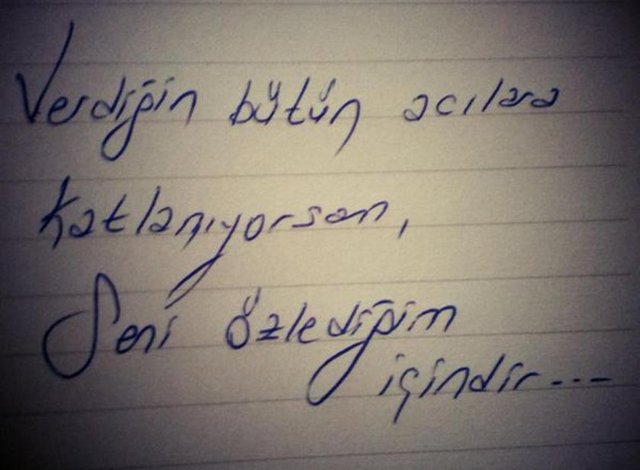 Verdiğin bütün acılara
katlanıyorsam,
Seni özlediğim
içindir...